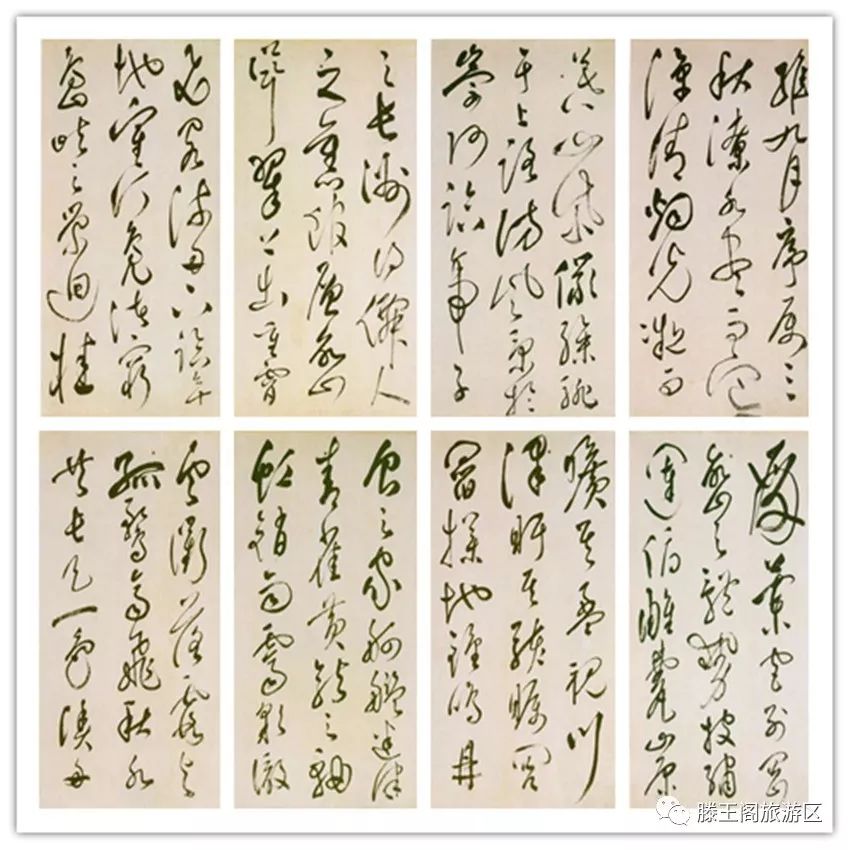 維九月序屬三
秋潦水盡而寒
潭清烟光凝而
暮山紫儼驂騑
于上路訪風景於
崇阿臨帝子
之長洲得僊人
之舊館層巒
聳翠上出重霄
飛閣流丹下臨無
地鶴汀鳧渚窮
島嶼之縈迴桂
殿蘭宮列岡
巒之體勢披繡
闥俯雕甍山原
曠其盈視川
澤盱其駭矚閭
閻撲地鐘鳴鼎
食之家舸艦迷津
青雀黃龍之舳
虹銷雨霽彩徹
雲衢落霞與
孤鶩齊飛秋水
共長天一色漁舟
滕王阁旅游区